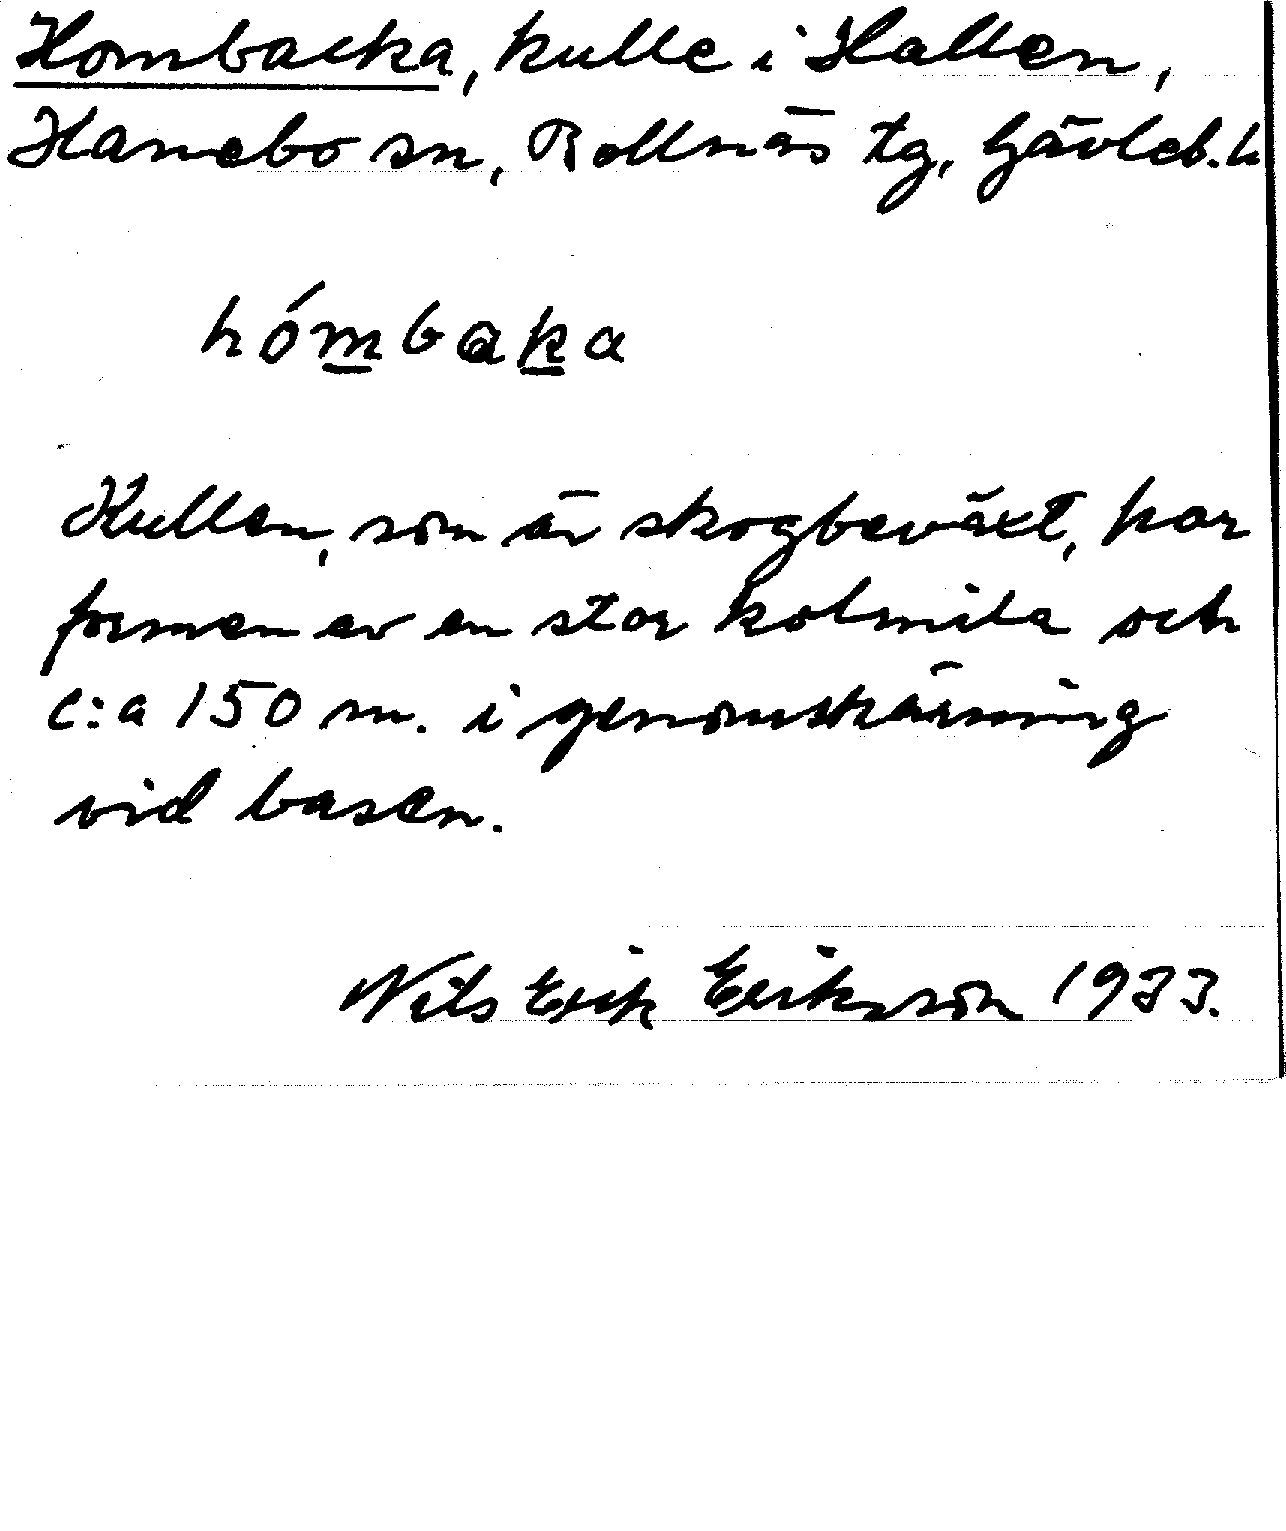 Hombacka, kulle i Hallen,
Hanebo sn, Bollnäs tg, Gävleb. l.
hómbaka
Kullen, som är skogbeväxt, har
formen av en stor kolmila och
c:a 150 m. i genomskärning
vid basen.
Nils Erik Eriksson 1933.